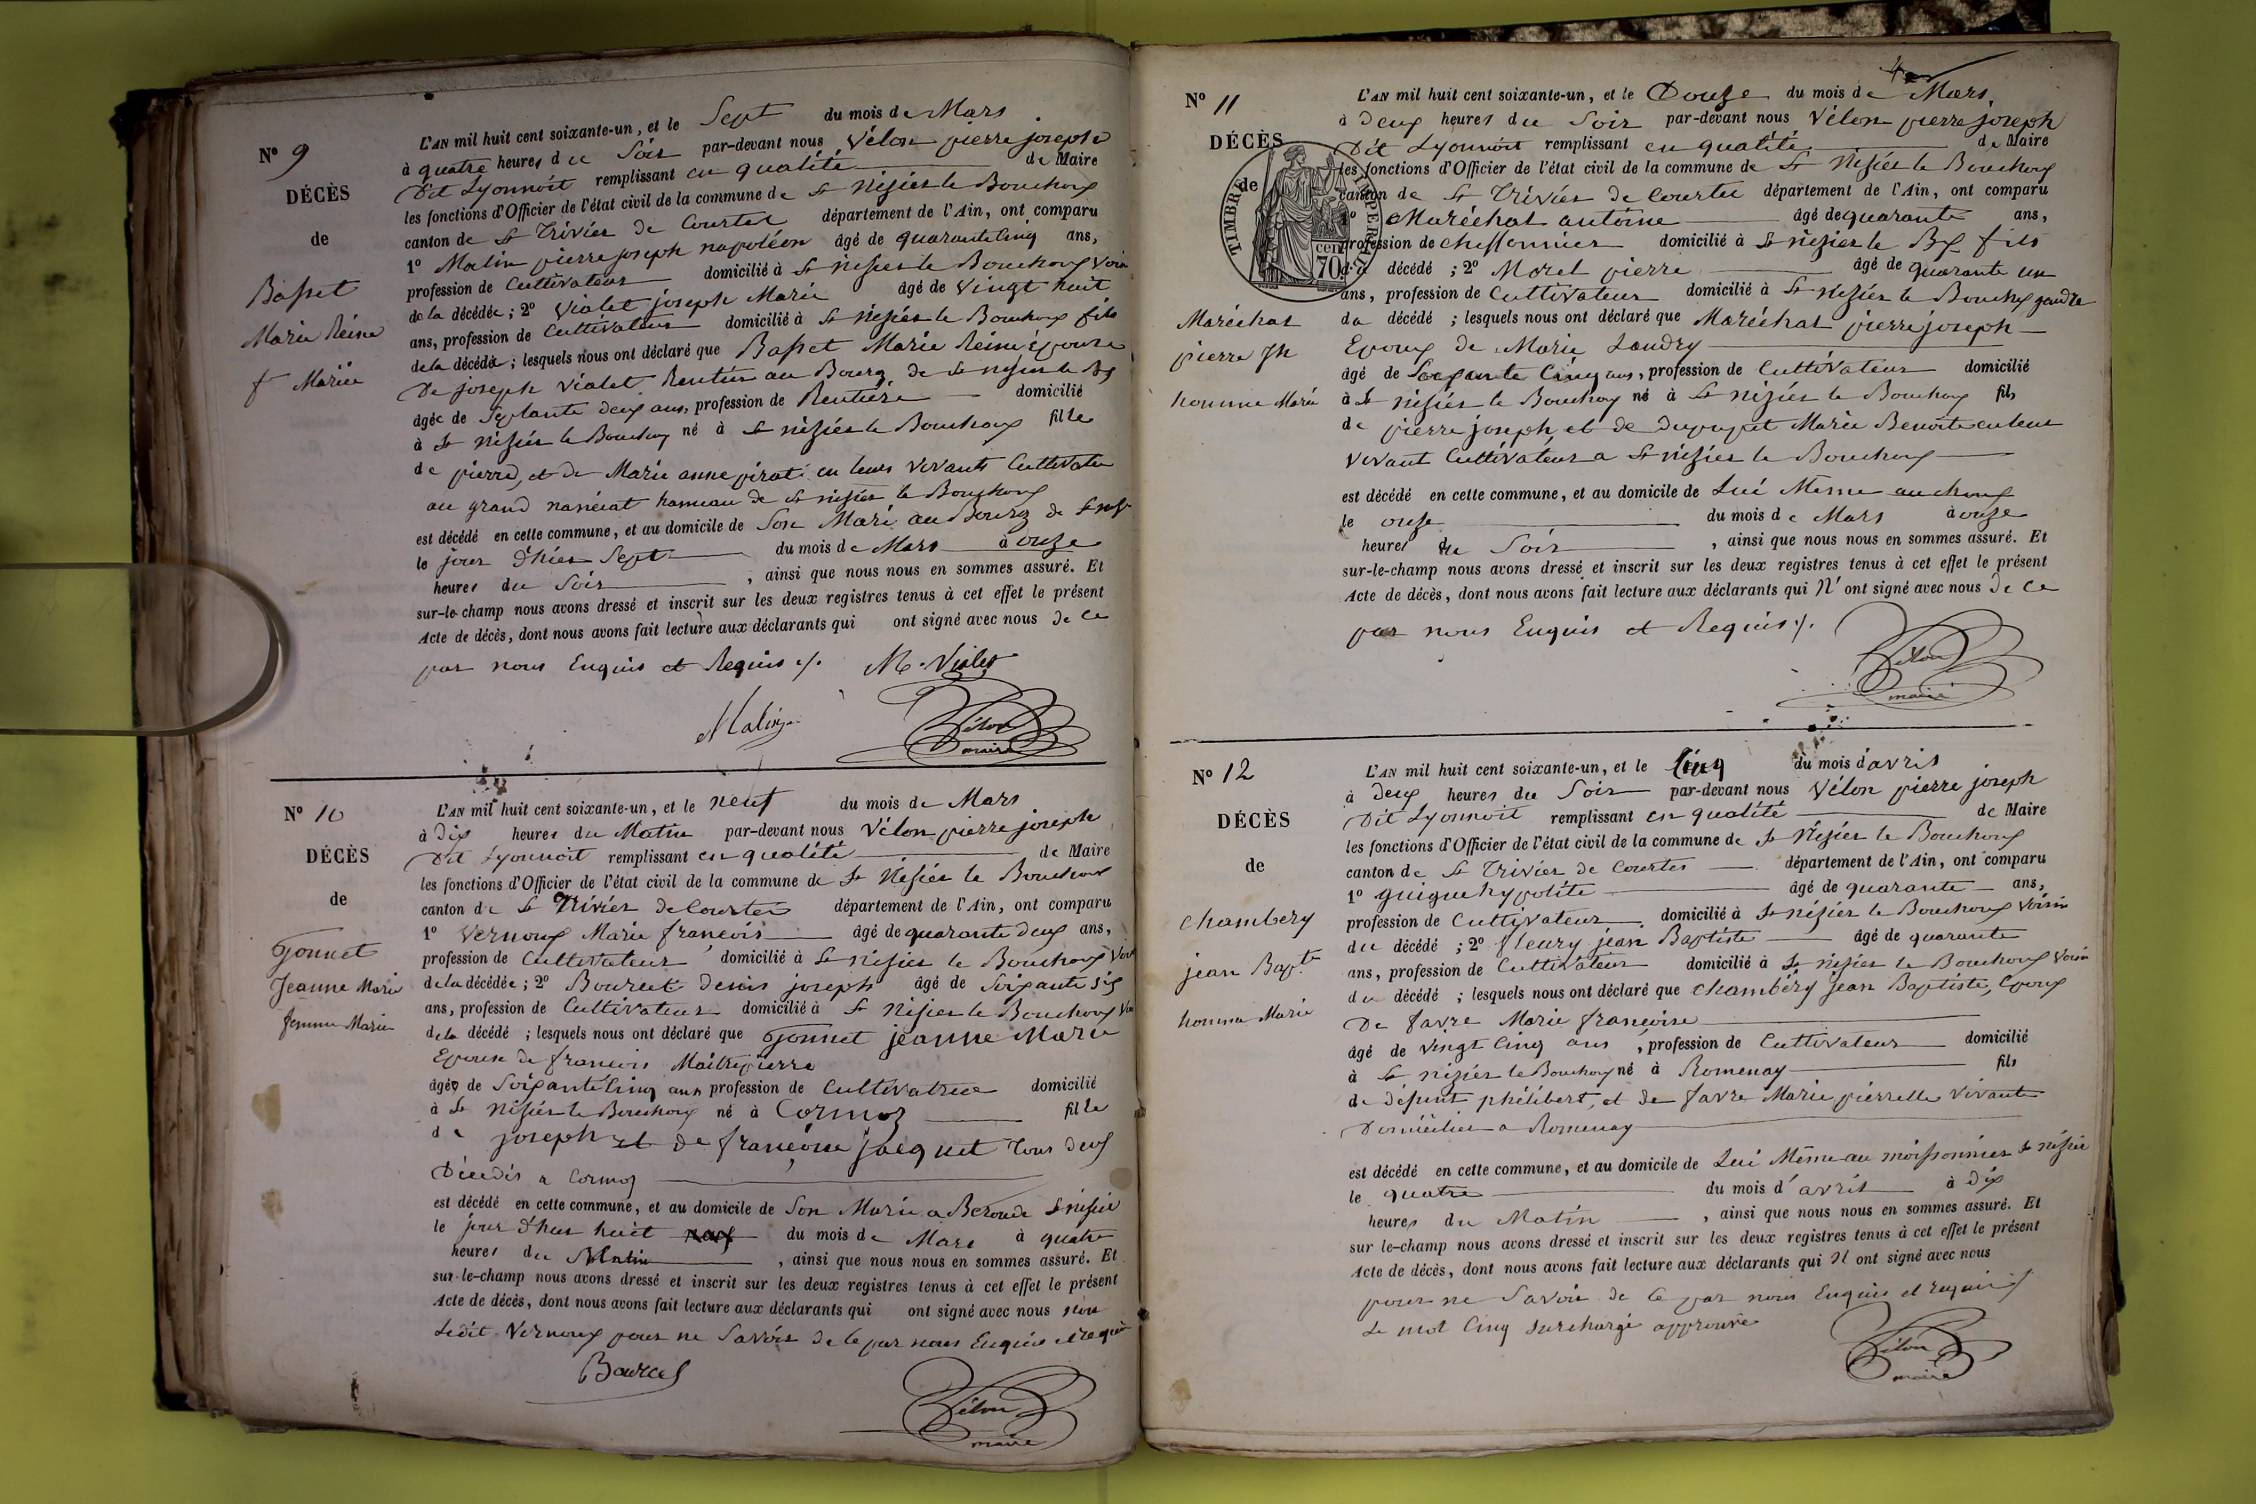 N° 9
DÉCÈS
de
Basset
Marie Reine
f Mariée
L'AN mil huit cent soixante-un, et le Sept du mois de Mars
à quatre heures du Soir par-devant nous Vélon pierre joseph
Dit Lyonnoit remplissant en qualité de Maire
les fonctions d'Officier de l'état civil de la commune de St Nisier le Bouchoux
canton de St Trivier de Courtes département de l'Ain, ont comparu
1° Malin pierre joseph napoléon âgé de quarante cinq ans,
profession de Cultivateur domicilié à St nisier le Bouchoux Voisin
de la décédée ; 2° Violet joseph Marie âgé de Vingt huit
ans, profession de Cultivateur domicilié à St Nisier le Bouchoux fils
de la décédée ; lesquels nous ont déclaré que Basset Marie Reine Epouse
De joseph Violet Rentier au Bourg de St nisier le Bx
âgée de Septante deux ans, profession de Rentière domicilié
à St nisier le Bouchoux né à St nisier le Bouchoux fille
de pierre, et de Marie anne pirat en leurs vivants Cultivateurs
au grand hameau de St nisier le Bouchoux
est décédé en cette commune, et au domicile de Son Mari au Bourg de St nisier
le jour d'hier Sept du mois de Mars à onze
heures du Soir , ainsi que nous nous en sommes assuré. Et
sur-le-champ nous avons dressé et inscrit sur les deux registres tenus à cet effet le présent
Acte de décès, dont nous avons fait lecture aux déclarants qui ont signé avec nous de ce
par nous Enquis et Requis ./. M. Violet
Malin
Vélon
maire
N° 10
DÉCÈS
de
Gonnet
Jeanne Marie
femme Mariée
L'AN mil huit cent soixante-un, et le neuf du mois de Mars
à Dix heures du Matin par-devant nous Vélon pierre joseph
Dit Lyonnoit remplissant en qualité de Maire
les fonctions d'Officier de l'état civil de la commune de St Nisier le Bouchoux
canton de St Trivier de Courtes département de l'Ain, ont comparu
1° Vernoux Marie françois âgé de quarante deux ans,
profession de Cultivateur domicilié à St nisier le Bouchoux Voisin
de la décédée ; 2° Bourcet denis joseph âgé de Soixante six
ans, profession de Cultivateur domicilié à St Nisier le Bouchoux Voisin
de la décédé ; lesquels nous ont déclaré que Gonnet jeanne Marie
Epouse de françois Maitrepierre
âgée de Soixante cinq ans profession de Cultivatrice domicilié
à St Nisier le Bouchoux né à Cormoz fille
de joseph et de françoise jacquet tous deux
Décédés a Cormoz
est décédé en cette commune, et au domicile de Son Mari a Beroude St nisier
le jour d'hier huit du mois de Mars à quatre
heures du Matin , ainsi que nous nous en sommes assuré. Et
sur-le-champ nous avons dressé et inscrit sur les deux registres tenus à cet effet le présent
Acte de décès, dont nous avons fait lecture aux déclarants qui ont signé avec nous non
Ledit Vernoux pour ne Savoir de ce par nous Enquis et requis
Bourcet
Vélon
maire
N° 11
DÉCÈS
de
TIMBRE IMPERIAL
70 cen
Maréchat
pierre Jh
homme Marié
L'AN mil huit cent soixante-un, et le Douze du mois de Mars,
à Deux heures du Soir par-devant nous Vélon pierre joseph
Dit Lyonnoit remplissant en qualité de Maire
les fonctions d'Officier de l'état civil de la commune de St Nisier le Bouchoux
canton de St Trivier de Courtes département de l'Ain, ont comparu
1° Maréchat antoine âgé de quarante ans,
profession de chiffonnier domicilié à St nisier le Bx fils
du décédé ; 2° Morel pierre âgé de quarante un
ans, profession de Cultivateur domicilié à St Nisier le Bouchoux gendre
du décédé ; lesquels nous ont déclaré que Maréchat pierre joseph
Epoux de Marie Landry
âgé de Soixante Cinq ans, profession de Cultivateur domicilié
à St nisier le Bouchoux né à St nizier le Bouchoux fils
de pierre joseph et de Dupupet Marie Benoite en leur
vivant Cultivateur a St nisier le Bouchoux
est décédé en cette commune, et au domicile de Lui Même au choux
le onze du mois de Mars à onze
heures du Soir , ainsi que nous nous en sommes assuré. Et
sur-le-champ nous avons dressé et inscrit sur les deux registres tenus à cet effet le présent
Acte de décès, dont nous avons fait lecture aux déclarants qui N'ont signé avec nous de ce
par nous Enquis et Requis ./.
Vélon
maire
N° 12
DÉCÈS
de
Chambéry
jean Bapte
homme Marié
L'AN mil huit cent soixante-un, et le Cinq du mois d'avril
à Deux heures du Soir par-devant nous Vélon pierre joseph
Dit Lyonnoit remplissant en qualité de Maire
les fonctions d'Officier de l'état civil de la commune de St Nisier le Bouchoux
canton de St Trivier de Courtes département de l'Ain, ont comparu
1° guigue hypolite âgé de quarante ans,
profession de Cultivateur domicilié à St nisier le Bouchoux Voisin
du décédé ; 2° fleury jean Baptiste âgé de quarante
ans, profession de Cultivateur domicilié à St nisier le Bouchoux Voisin
du décédé ; lesquels nous ont déclaré que Chambéry jean Baptiste, Epoux
De favre Marie françoise
âgé de vingt Cinq ans , profession de Cultivateur domicilié
à St nizier le Bouchoux né à Romenay fils
de défunt philibert, et de favre Marie pierrette Vivante
Domiciliée a Romenay
est décédé en cette commune, et au domicile de Lui Même au moissonnier St nisier
le quatre du mois d'avril à dix
heures du Matin , ainsi que nous nous en sommes assuré. Et
sur le-champ nous avons dressé et inscrit sur les deux registres tenus à cet effet le présent
Acte de décès, dont nous avons fait lecture aux déclarants qui N ont signé avec nous
pour ne Savoir de ce par nous Enquis et requis ./.
Le mot Cinq Surchargé approuvé
Vélon
maire